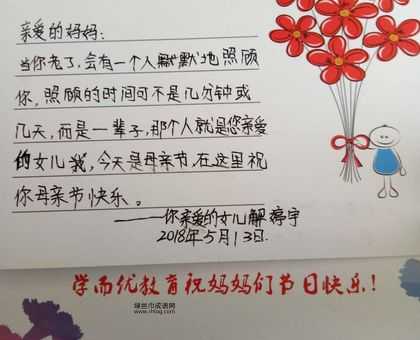 亲爱的妈妈：
当你老了，会有一个人默默地照顾
你，照顾的时间可不是几分钟或
几天，而是一辈子，那个人就是您亲爱
的女儿我，今天是母亲节，在这里祝
你母亲节快乐。
——你亲爱的女儿解婷宇
2018年5月13日.
学而优教育祝妈妈们节日快乐！
绿丝巾成语网
www.rhlag.com